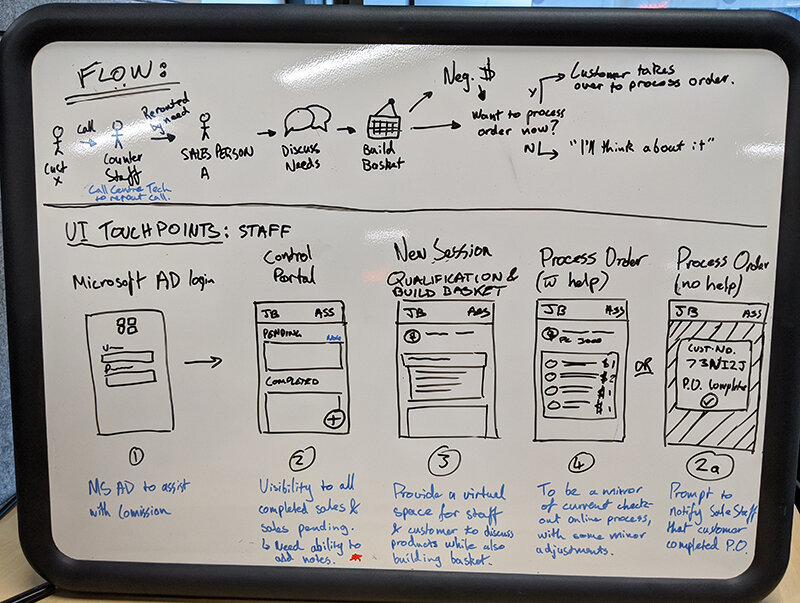 FLOW:
Cust
X
Call
Counter
Staff
Call Centre Tech
to reroute call.
Rerouted
by need
SALES PERSON
A
Discuss
Needs
Build
Basket
Neg. $
Want to process
order now?
Y
Customer takes
over to process order.
N
"I'll think about it"
UI TOUCHPOINTS: STAFF
Microsoft AD login
①
MS AD to assist
with Comission
Control
Portal
JB ASS
PENDING
COMPLETED
+
②
Visibility to all
completed sales &
sales pending.
↳ Need ability to
add notes.
New Session
QUALIFICATION &
BUILD BASKET
JB ASS
③
Provide a virtual
space for staff
& customer to discuss
products while also
building basket.
Process Order
(w help)
JB ASS
PC 3000
$ 1
$ 2
$ 1
$ 1
④
To be a mirror
of current check-
out online process,
with some minor
adjustments.
OR
Process Order
(no help)
JB ASS
CUST-NO.
73NI2J
P.O. Complete
2a
Prompt to
notify Sale Staff
that customer
completed P.O.